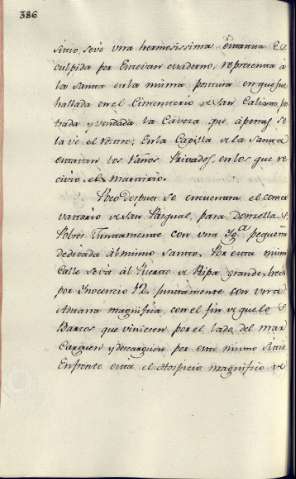 386
sitio, se ve una hermosissima Estatua Es
culpida por Estevan Maderno, representa à
la Santa en la misma postura en que fue
hallada en el Cimenterio de San Calixto, pos
trada y vendada la Caveza que apenas se
la ve el rostro; en la Capilla de la Santa
estavan los Vaños Privados, en los que re
civio el Martirio.
Poco despues se encuentra el conser
vatorio de San Pasqual, para Donzellas
Pobres Juntamente con una Ygª pequeña
dedicada al mismo Santo. Por esta misma
Calle se va àl Puerto de Ripa grande, hecho
por Ynocencio 12. juntamente con una
Aduana magnifica, con el fin de que los
Barcos que vinieren por el lado del mar
Carguen y descarguen por este mismo sitio
Enfrente està el Hospicio magnifico de